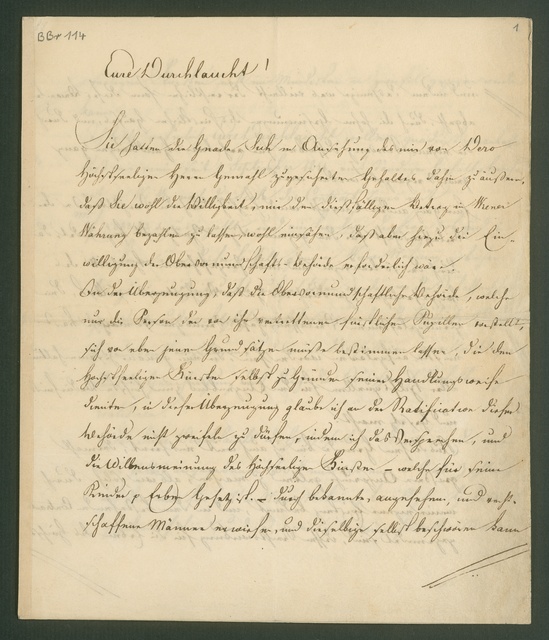 BBr 114
1
Eure Durchlaucht!
Sie hatten die Gnade, Sich in Ansehung des mir von Dero
höchstseeligen Herrn Gemahl zugesicherten Gehaltes dahin zu äußern,
daß Sie wohl die Billigkeit, mir den dießfälligen Betrag in Wiener
Währung bezahlen zu lassen, wohl einsähen, daß aber hierzu die Ein-
willigung der Obervormundschafts-Behörde erforderlich wäre.
In der Überzeugung, daß die Obervormundschaftliche Behörde, welche
nur die Person der von ihr vertrettenen fürstlichen Pupillen vorstellt,
sich von eben jenen Grundsätzen müße bestimmen lassen, die dem
höchstseeligen Fürsten selbst zu Grunde seiner Handlungsweise
dienten, in dieser Überzeugung glaube ich an der Ratification dieser
Behörde nicht zweifeln zu dürfen, indem ich das Versprechen, und
die Willensmeinung des höchstseeligen Fürsten – welche für seine
Kinder p Erben Gesetz ist – durch bekannte, angesehene, und recht-
schaffene Männer erweisen, und dieselbige selbst beschwören kann